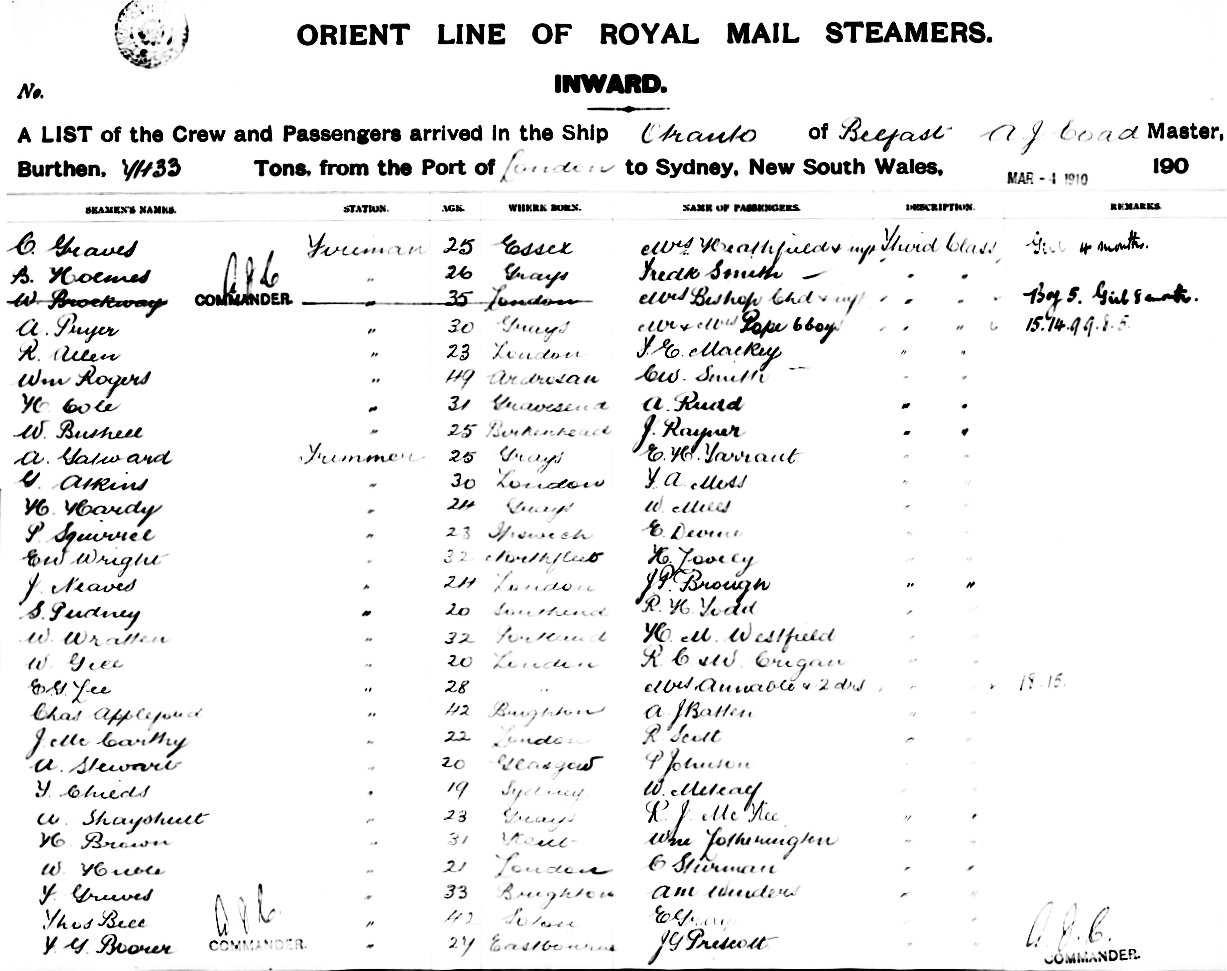 ORIENT LINE OF ROYAL MAIL STEAMERS.
INWARD.
No.
A LIST of the Crew and Passengers arrived in the Ship Otranto of Belfast A J Coad Master,
Burthen, Tons, from the Port of London to Sydney, New South Wales, MAR - 4 1910 190
SEAMEN'S NAMES. STATION. AGE. WHERE BORN. NAME OF PASSENGERS. DESCRIPTION. REMARKS.
C. Graves Fireman 25 Essex Mrs Heathfield & inf Third Class Girl 4 months.
B. Holmes " 26 Grays Fredk Smith " "
W. Brockway A J C COMMANDER. " 35 London Mrs Bishop Chd & inf " " Boy 5. Girl 8 month.
A. Pryer " 30 Grays Mr & Mrs Pope 6 boys " " 15.14.9.9.8.5.
R. Allen " 23 London F. E. Mackey " "
Wm Rogers " 49 Ardrosan CW. Smith " "
H. Cole " 31 Gravesend A. Rudd " "
W. Bushell " 25 Birkenhead J. Rayner " "
A. Galward Trimmer 25 Grays E. H. Tarrant " "
G. Atkins " 30 London F. A. Moss " "
H. Hardy " 24 Grays W. Mills " "
P. Squirrel " 23 Ipswich E. Devine " "
EW Wright " 32 Northfleet H. Tovey " "
J. Neaves " 24 London JP. Brough " "
S. Pudney " 20 Southend R. H. Todd " "
W. Wratten " 32 Portland H. M. Westfield " "
W. Gill " 20 London R C & W. Crigan " "
EG Lee " 28 " Mrs Annable & 2 drs " " 18.15.
Chas Appleford " 42 Brighton A. J Batten " "
J. Mc Carthy " 22 London R Scott " "
A. Stewart " 20 Glasgow P Johnson " "
F. Childs " 19 Sydney W. " "
A. " 23 Grays R. J. " "
H. Brown " 31 Kent Wm Fotherington " "
W. " 21 London C Sturman " "
F. " 33 Brighton AM Winders " "
Thos Bell A J C " 42 Soton E Gray " "
F. G. Boorer COMMANDER. " 27 Eastbourne JG Priscott " " A. J. C. COMMANDER.